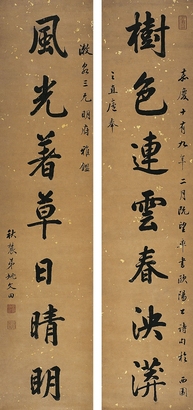 樹色連雲春泱漭
風光著草日晴明
嘉慶十有九年二月既望書歐陽公詩句於西園
之直廬奉
漵泉三兄明府雅鑑
秋農弟姚文田